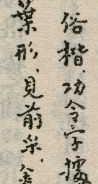 俗楷.功令字據
葉形,見前朵,